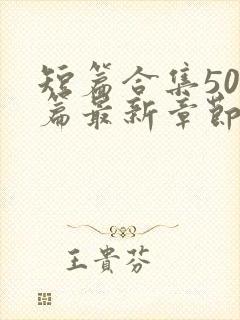 短篇合集50
篇最新章節
王貴芬